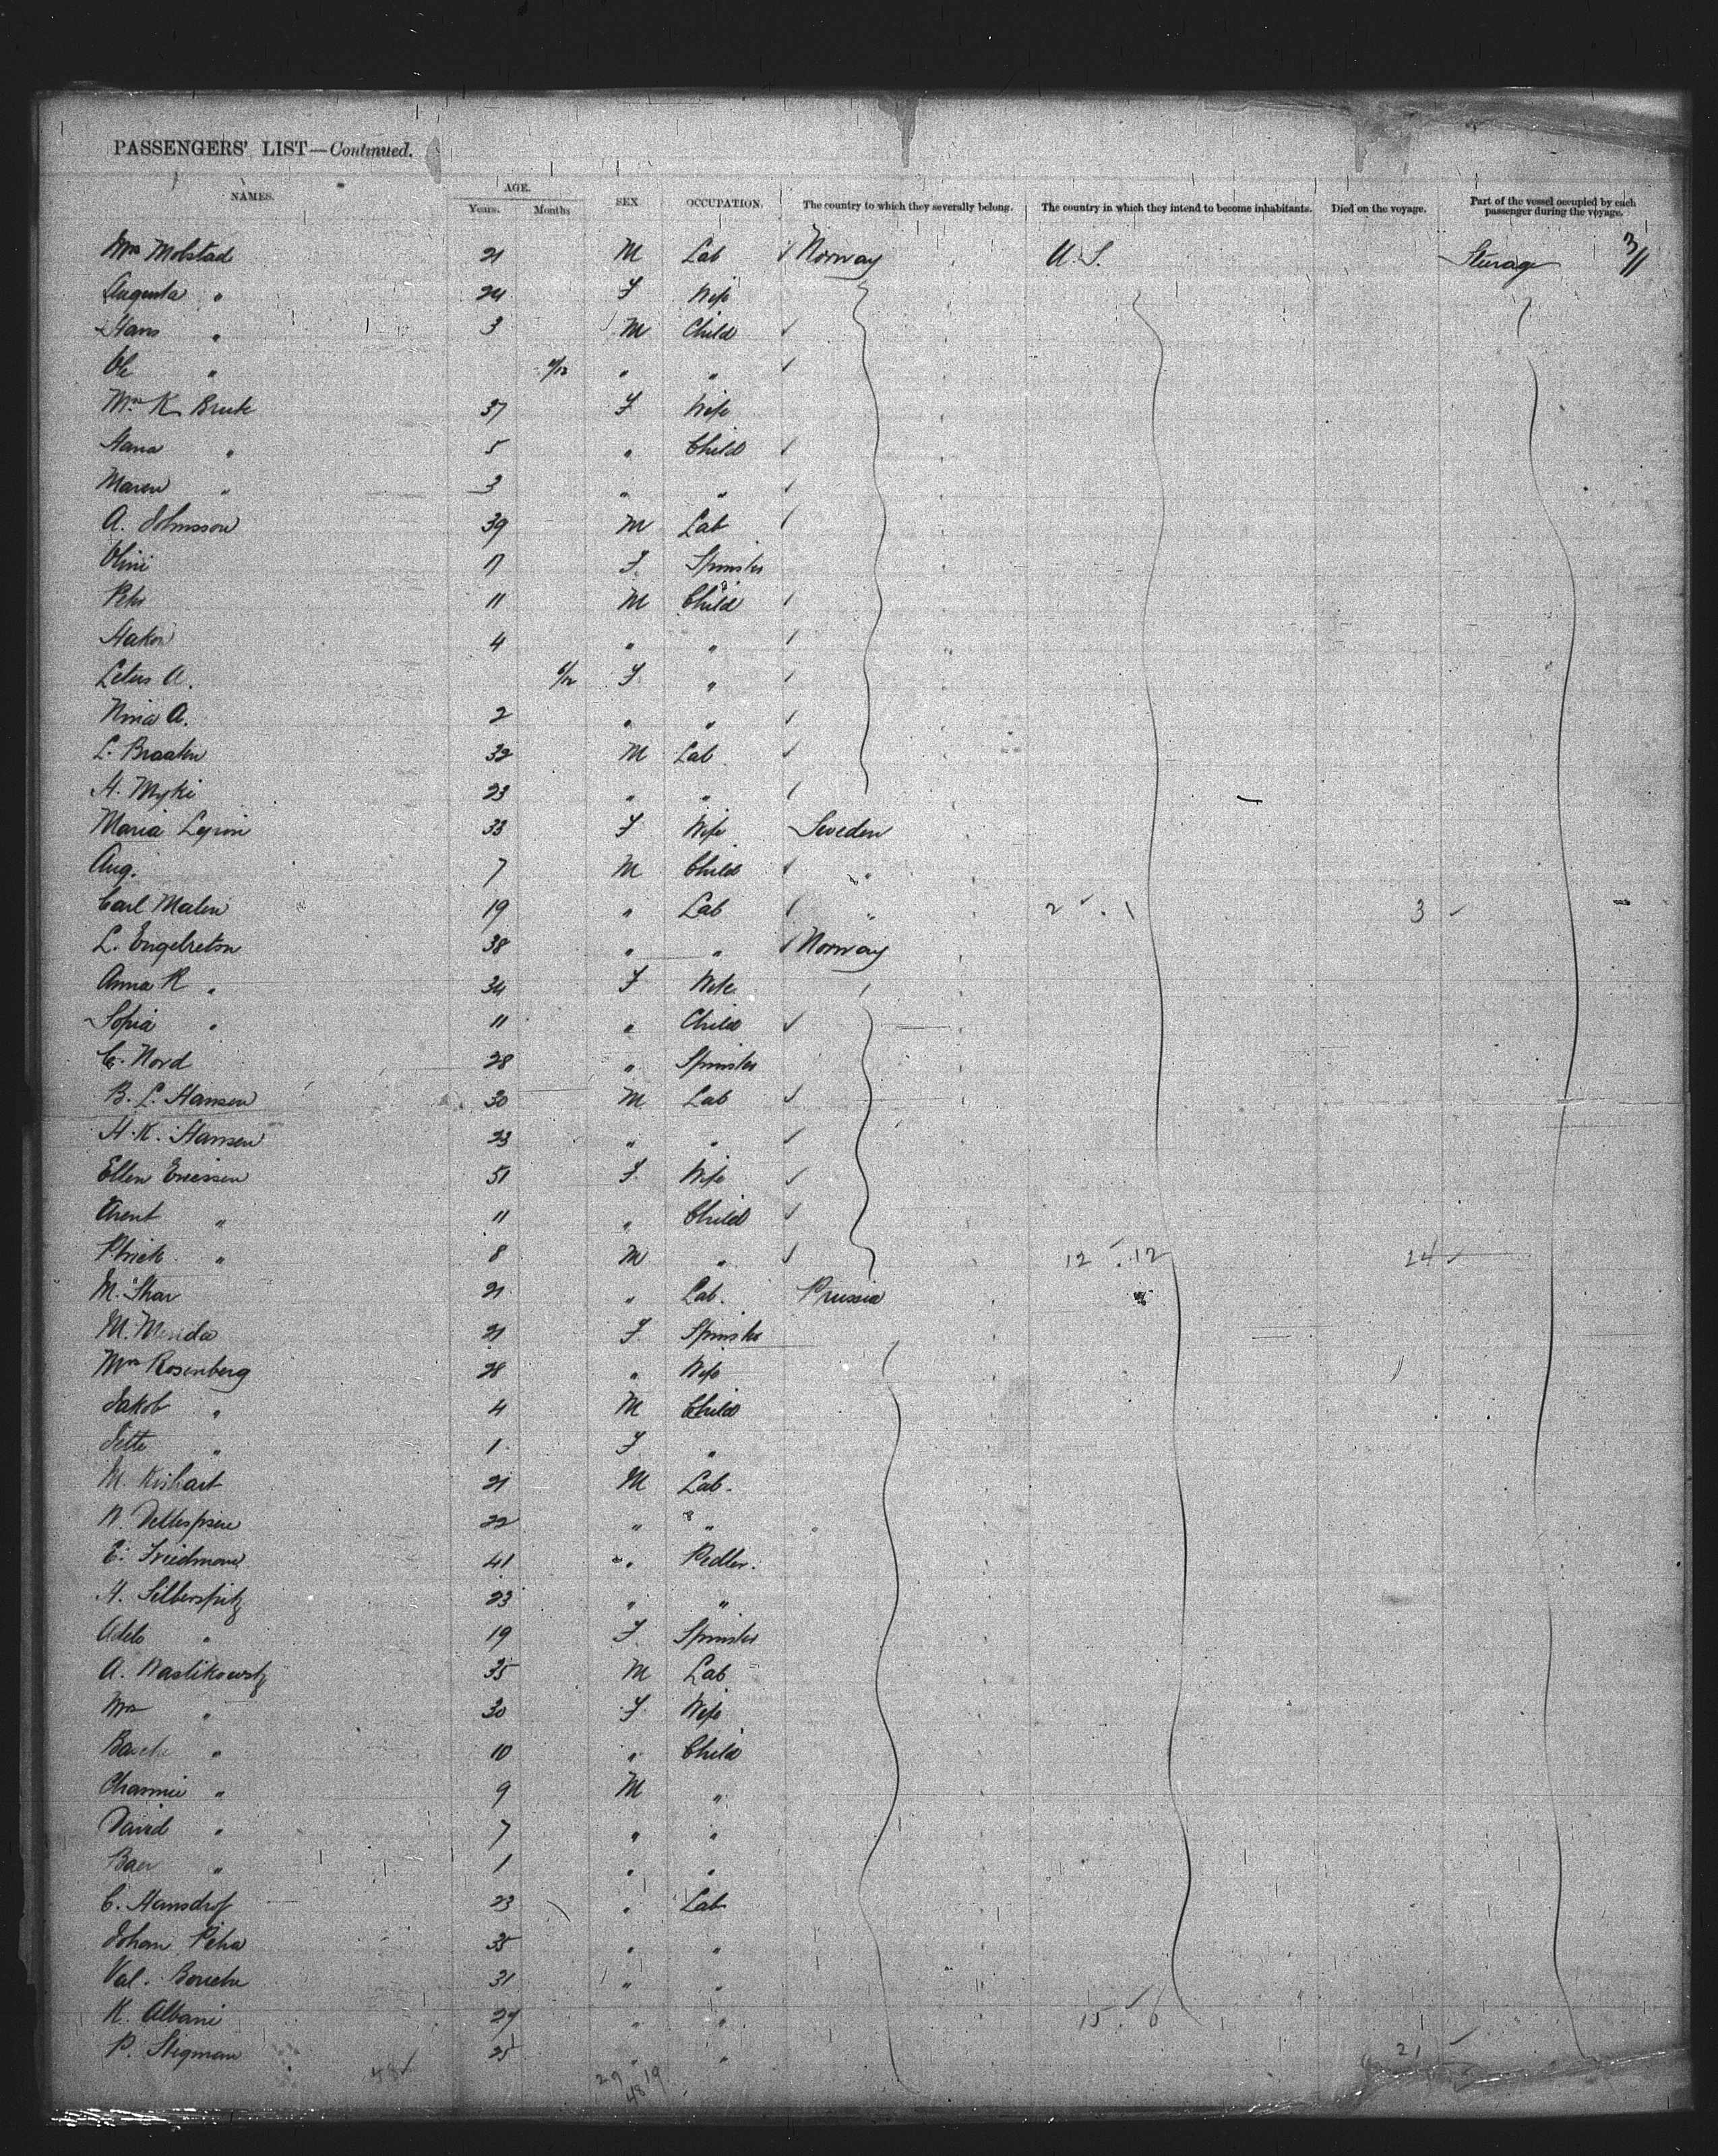 PASSENGERS' LIST—Continued.
NAMES. AGE. Years. Months SEX OCCUPATION. The country to which they severally belong. The country in which they intend to become inhabitants. Died on the voyage. Part of the vessel occupied by each passenger during the voyage.
Molstad 21 M Lab Norway U.S. Sturage
Augusta " 24 F Wife
Hans " 3 M Child
Ole " /12 " "
Mrs K 37 F Wife
Hana " 5 " Child
Maren " 3 " "
A. Johnsson 39 M Lab
Olini 17 F Spinster
Peter 11 M Child
Hakon 4 " "
A. 6/12 F "
Nina A. 2 " "
L. Braaten 32 M Lab
H. Myki 23 " "
Maria 33 F Wife Sweden
Aug. 7 M Child "
Carl Malen 19 " Lab " 2 1 3
L. Engelretson 38 " " Norway
Anna K " 34 F Wife
Sofia " 11 " Child
C. Nord 28 " Spinster
B. L. Hansen 30 M Lab
H. K. Hansen 23 " "
Ellen Ericssen 51 F Wife
Arent " 11 " Child
" 8 M " 12 12 24
M. 21 " Lab. Prussia
M. 21 F Spinster
Mrs Rosenberg 28 " Wife
Jakob " 4 M Child
Jette " 1 F "
M. 21 M Lab.
N. 22 " "
E. Friedmand 41 " Pedler.
H. Silberspitz 23 " "
Adele " 19 F Spinster
A. 35 M Lab
Mrs " 30 F Wife
" 10 " Child
Channie " 9 M "
David " 7 " "
Baer " 1 " "
C. Hansdrof 23 " Lab
Johan 35 " "
Val. 31 " "
K. Albani 29 " " 15 6
P. Stigman 25 " " 21
48 29 19
48